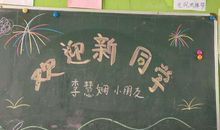 欢迎新同学
李慧娴 小朋友